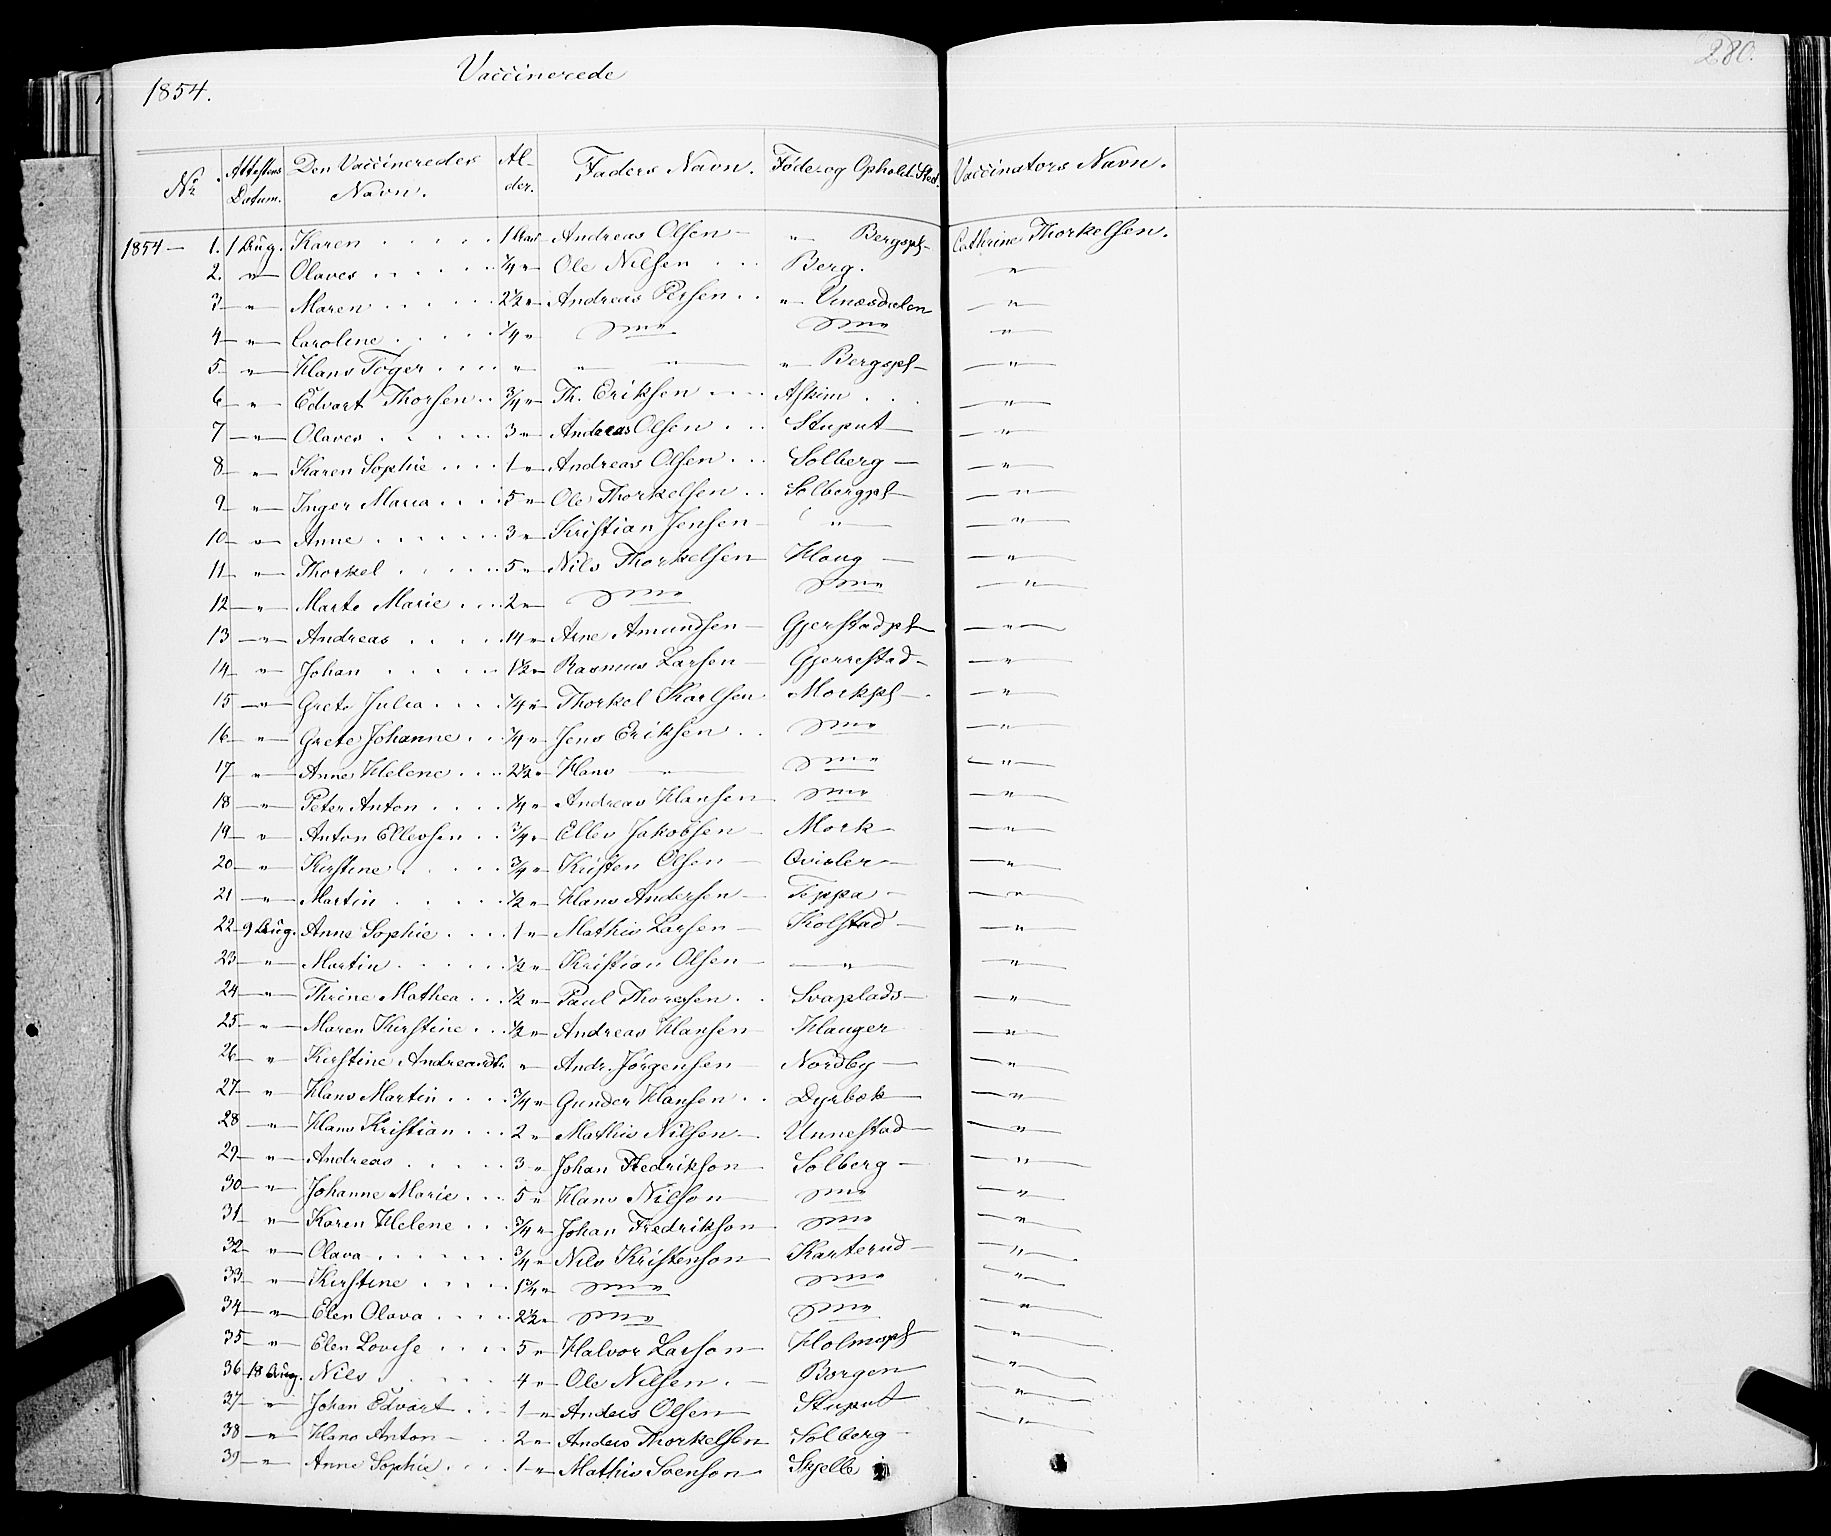 280.
1854. Vaccinerede
No. Attestens Datum. Den Vaccineredes Navn. Alder. Faders Navn. Føde og Ophold Sted. Vaccinators Navn.
1854 — 1. 1 Aug. Karen . . . . . 1 Aar Andreas Olsen — „ Bergspl— Cathrine Thorkelsen.
2. —„— Olaves . . . . . ¼ „ Ole Nilsen . . . Berg. —„—
3 —„— Maren . . . . . 2½ „ Andreas Persen . . „ Vinæsdalen —„—
4 —„— Caroline . . . . . ¼ „ —„— —„— —„—
5 —„— Hans Tøger . . . . „ „ —„— „ Bergspl— —„—
6 —„— Edvart Thorsen . . ¾ „ Th. Eriksen . . . . Askim . . . —„—
7 —„— Olaves . . . . . 3 „ Andreas Olsen . . . Stuput —„—
8 —„— Karen Sophie . . . . 1 „ Andreas Olsen . . . Solberg — —„—
9 —„— Inger Maria . . . . 5 „ Ole Thorkelsen . . Solbergpl— —„—
10 —„— Anne . . . . . . 3 „ Kristian Jensen — „ —„—
11 —„— Thorkel . . . . . 5 „ Nils Thorkelsen Haug — —„—
12 —„— Marte Marie . . . 2 „ —„— —„— —„—
13 —„— Andreas . . . . . 14 „ Arne Amundsen — Gjerstadpl— —„—
14 —„— Johan . . . . . 1½ „ Rasmus Larsen — Gjerrestad — —„—
15 —„— Grete Julia . . . . ¼ „ Thorkel Karlsen Morkpl—. —„—
16 —„— Grete Johanne . . ¼ „ Jens Eriksen . . —„— —„—
17 —„— Anne Helene . . . 2½ „ Hans —„— —„— —„—
18 —„— Peter Anton . . . . ¼ „ Andreas Hansen —„— —„—
19 —„— Anton Ellevsen . . ¾ „ Ellev Jakobsen — Mork —„—
20 —„— Kirstine . . . . . ¾ „ Kristen Olsen — Qvisler — —„—
21 —„— Martin . . . . . ½ „ Hans Andersen — Teppa — —„—
22 — 9 Aug. Anne Sophie . . . . 1 „ Mathis Larsen — Kolstad — —„—
23 —„— Martin . . . . . ½ „ Kristian Olsen — —„— —„—
24 —„— Thrine Mathea . . . ½ „ Paul Thoresen . . Svaplads — —„—
25 —„— Maren Kirstine . . . ½ „ Andreas Hansen — Hauger —„—
26 —„— Kirstine Andreasdtr. „ Andr. Jørgensen — Nordby — —„—
27 —„— Hans Martin . . . . ¾ „ Gunder Hansen . . Dyrbek —„—
28 —„— Hans Kristian . . . 2 „ Mathis Nilsen —. Unnestad — —„—
29 —„— Andreas . . . . . 3 „ Johan Fredrikson — Solberg — —„—
30 —„— Johanne Marie . . . 5 „ Hans Nilson —„— —„—
31 —„— Karen Helene . . . ¾ „ Johan Fredrikson —„— —„—
32 —„— Olava . . . . . . ¾ „ Nils Kristenson — Karterud — —„—
33 —„— Kirstine . . . . . 1¾ „ —„— —„— —„—
34 —„— Elen Olava . . . . 2½ „ —„— —„— —„—
35 —„— Elen Lovise . . . . 5 „ Halvor Larson — Holmspl— —„—
36 — 18 Aug. Nils . . . . . 4 „ Ole Nilsen . — Borgen —„—
37 —„— Johan Edvart . . . 1 „ Anders Olsen Stuput —„—
38 —„— Hans Anton — . . 2 „ Anders Thorkelsen Solberg — —„—
39 —„— Anne Sophie . . . . 1 „ Mathis Svenson — Skjelle